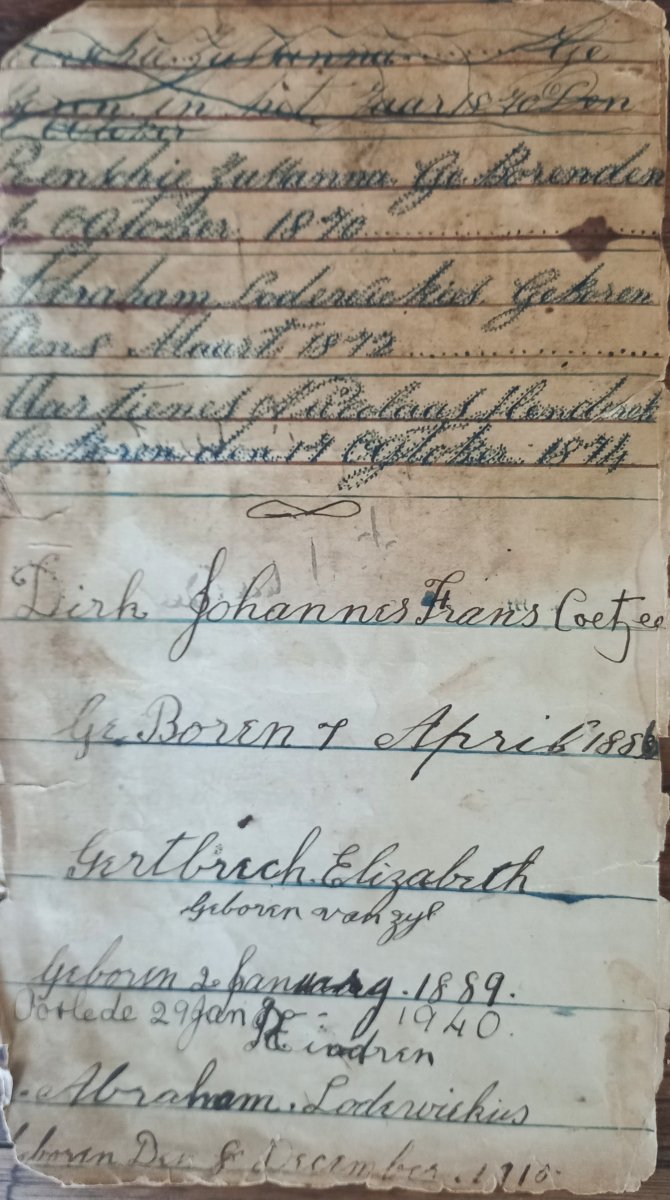 Zusanna Ge
Boren in het Jaar 1870 Den
October
Renschie Zusanna Ge Boren den
October 1870
Abraham Loderwickus Geboren
Maart 1872
Martienes Nickolaas Hendrek
Geboren den 17 October 1874
Dirk Johannes Frans Coetzee
Ge Boren 7 April 188
Gertbrech Elizabeth
Geboren van zyl
Geboren 2 January . 1889.
Oorlede 29 Jan 1940.
Kindren
Abraham . Loderwickus
Geboren Den 8 December . 191